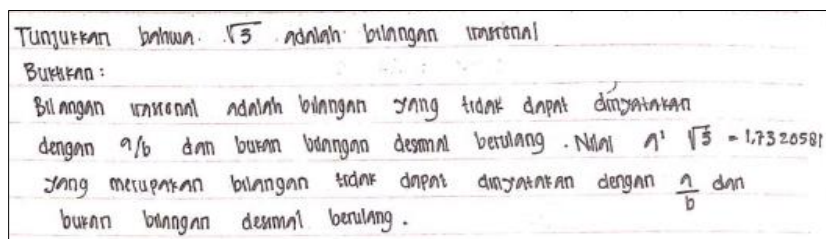 Tunjukkan bahwa √3 adalah bilangan irasional
Buktikan :
Bilangan irasional adalah bilangan yang tidak dapat dinyatakan
dengan a/b dan bukan bilangan desimal berulang . Nilai √3 = 1,7320581
yang merupakan bilangan tidak dapat dinyatakan dengan a/b dan
bukan bilangan desimal berulang .